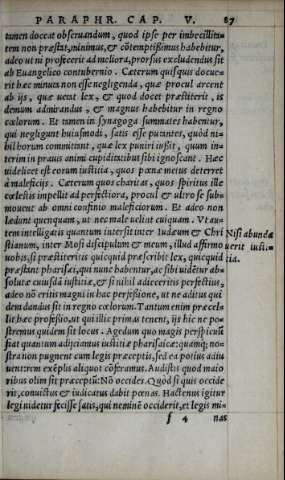 PARAPHR. CAP. V. 87
tamen doceat obseruandum, quod ipse per imbecillita-
tem non præstat, minimus, & cōtemptißimus habebitur,
adeo ut ni profecerit ad meliora, prorsus excludendus sit
ab Euangelico contubernio. Cæterum quisquis docue-
rit hæc minuta non esse negligenda, quæ procul arcent
ab ijs, quæ uetat lex, & quod docet præstiterit, is
demum admirandus, & magnus habebitur in regno
cœlorum. Et tamen in synagoga summates habentur,
qui negligunt huiusmodi, satis esse putantes, quòd ni-
hil horum committant, quæ lex puniri iußit, quum in-
terim in prauis animi cupiditatibus sibi ignoscant. Hæc
uidelicet est eorum iustitia, quos pœnæ metus deterret
à maleficijs. Cæterum quos charitas, quos spiritus ille
cœlestis impellit ad perfectiora, procul & ultro se sub-
mouent ab omni confinio maleficiorum. Et adeo non
lædunt quenquam, ut nec male uelint cuiquam. Vt au-
tem intelligatis quantum intersit inter Iudæum & Chri Nisi abunda
stianum, inter Mosi discipulum & meum, illud affirmo uerit iusti-
uobis, si præstiteritis quicquid præscribit lex, quicquid tia.
præstant pharisæi, qui nunc habentur, ac sibi uidētur ab-
solutæ cuiusdā iustitiæ, & si nihil adieceritis perfectius,
adeo nō eritis magni in hac perfeßione, ut ne aditus qui
dem dandus sit in regno cœlorum. Tantum enim præcel-
lit hæc profeßio, ut qui illic primas tenent, ijs hic ne po-
stremus quidem sit locus. Agedum quo magis perspicuū
fiat quantum adijciamus iustitiæ pharisaicæ: quamq; no-
stra non pugnent cum legis præceptis, sed ea potius adiu
uent: rem exēplis aliquot cōferamus. Audistis quod maio
ribus olim sit præceptū: Nō occides. Quod si quis occide
rit, conuictus & iudicatus dabit pœnas. Hactenus igitur
legi uidetur fecisse satis, qui neminē occiderit, et legis mi-
f 4 nas